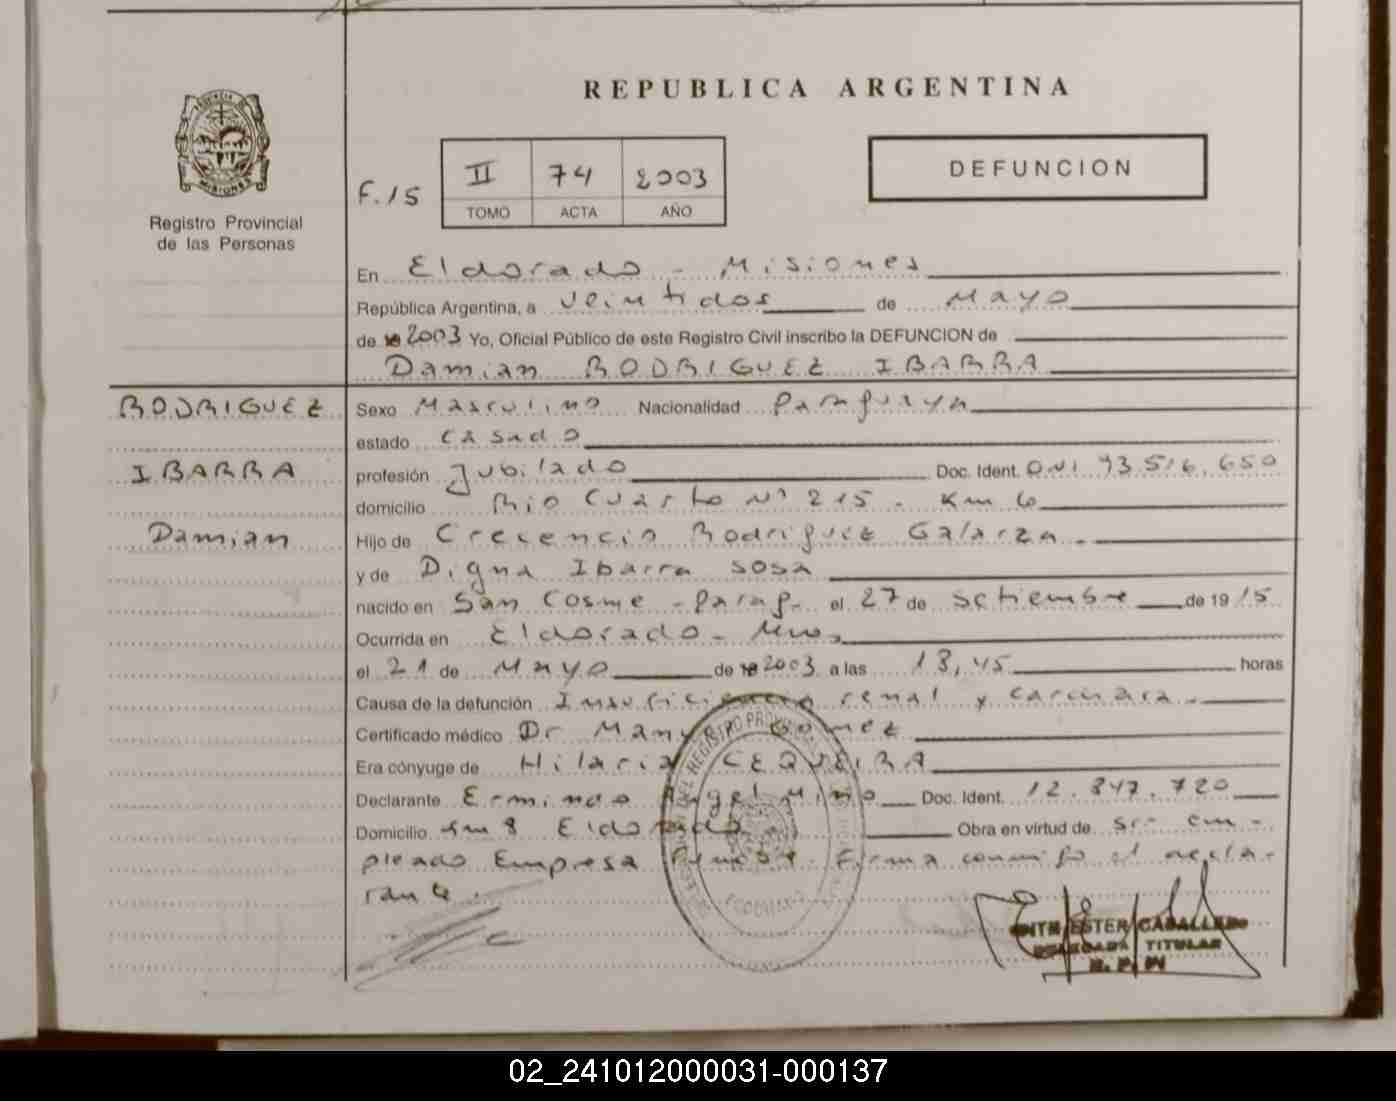 REPUBLICA ARGENTINA
PROVINCIA DE MISIONES
Registro Provincial
de las Personas
DEFUNCION
F.15
II 74 2003
TOMO ACTA AÑO
En Eldorado - Misiones
República Argentina, a veintidos de Mayo
de 2003 Yo, Oficial Público de este Registro Civil inscribo la DEFUNCION de
Damian RODRIGUEZ IBARRA
RODRIGUEZ
IBARRA
Damian
Sexo Masculino Nacionalidad Paraguaya
estado casado
profesión Jubilado Doc. Ident. DNI 93.516.650
domicilio Rio Cuarto Nº 215 - Km 6
Hijo de Crecencio Rodriguez Galarza -
y de Digna Ibarra Sosa
nacido en San Cosme - Parag- el 27 de Setiembre de 1915
Ocurrida en Eldorado - Mnes
el 21 de Mayo de 2003 a las 13,45 horas
Causa de la defunción renal y
Certificado médico Dr Gomez
Era cónyuge de Hilaria CEQUEIRA
Declarante Ermindo Angel Miño Doc. Ident. 12.847.720
Domicilio Km 8 Eldorado Obra en virtud de ser em-
pleado Empresa Firma conmigo el decla-
rante.
ESTER CABALLERO
DELEGADA TITULAR
R. P. P.
02_241012000031-000137